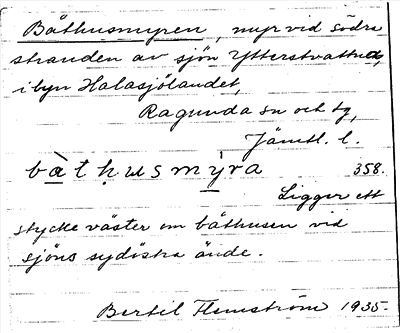 Båthusmyren, myr vid södra
stranden av sjön Ytterstvattnet,
i byn Halasjölandet,
Ragunda sn och tg,
Jämtl. l.
bàt ḥusmỳra 358.
Ligger ett
stycke väster om båthusen vid
sjöns sydöstra ände.
Bertil Flemström 1935.